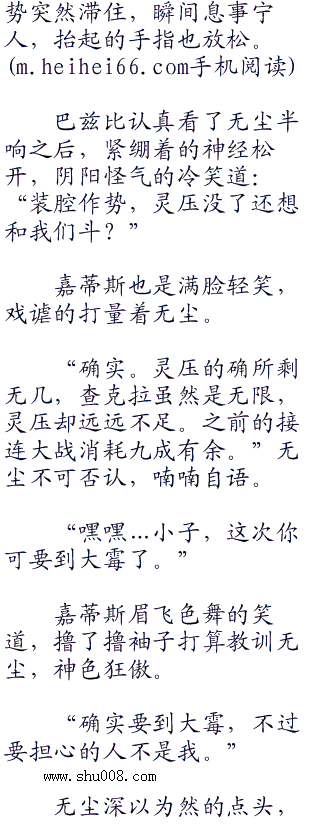 势突然滞住，瞬间息事宁
人，抬起的手指也放松。
(m.heihei66.com手机阅读)
巴兹比认真看了无尘半
响之后，紧绷着的神经松
开，阴阳怪气的冷笑道：
“装腔作势，灵压没了还想
和我们斗？”
嘉蒂斯也是满脸轻笑，
戏谑的打量着无尘。
“确实。灵压的确所剩
无几，查克拉虽然是无限，
灵压却远远不足。之前的接
连大战消耗九成有余。”无
尘不可否认，喃喃自语。
“嘿嘿…小子，这次你
可要到大霉了。”
嘉蒂斯眉飞色舞的笑
道，撸了撸袖子打算教训无
尘，神色狂傲。
“确实要到大霉，不过
要担心的人不是我。”
www.shu008.com
无尘深以为然的点头，